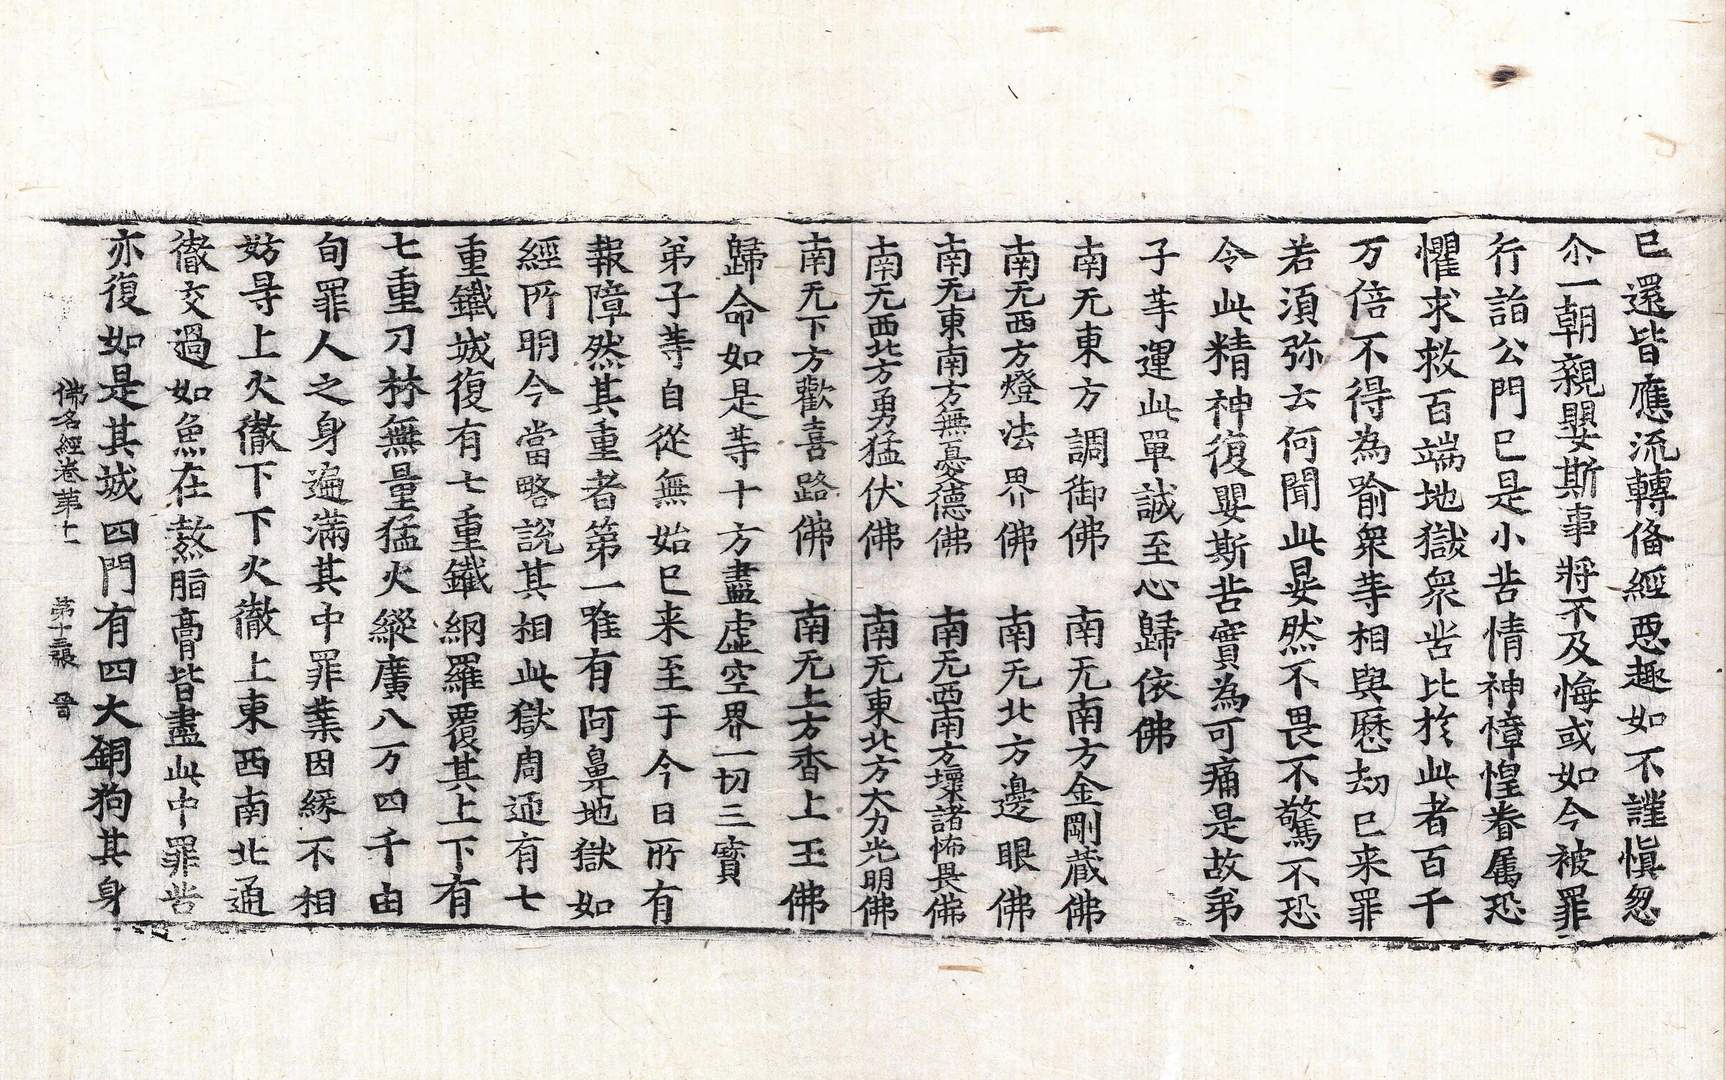 已還皆應流轉俻經惡趣如不謹愼忽
尒一朝親嬰斯事將不及悔或如今被罪
行詣公門已是小苦情神慞惶眷属恐
懼求救百端地獄衆苦比扵此者百千
万倍不得為喻衆䓁相與歷劫已来罪
若湏弥云何聞此晏然不畏不驚不恐
令此精神復嬰斯苦實為可痛是故弟
子䓁運此單誠至心歸依佛
南无東方調御佛　南无南方金剛藏佛
南无西方燈法界佛　南无北方邊眼佛
南无東南方無憂德佛　南无西南方壞諸怖畏佛
南无西北方勇猛伏佛　南无東北方大力光明佛
南无下方歡喜路佛　南无上方香上王佛
歸命如是䓁十方盡虚空界一切三寳
弟子䓁自從無始已来至于今日所有
報障然其重者第一唯有阿鼻地獄如
經所明今當略說其相此獄周迊有七
重鐵城復有七重鐵網羅覆其上下有
七重刀林無量猛火縱廣八万四千由
旬罪人之身遍滿其中罪業因縁不相
妨㝵上火徹下下火徹上東西南北通
徹交過如魚在熬脂膏皆盡此中罪苦
亦復如是其城四門有四大銅狗其身
佛名經卷苐十　苐十三張　晉